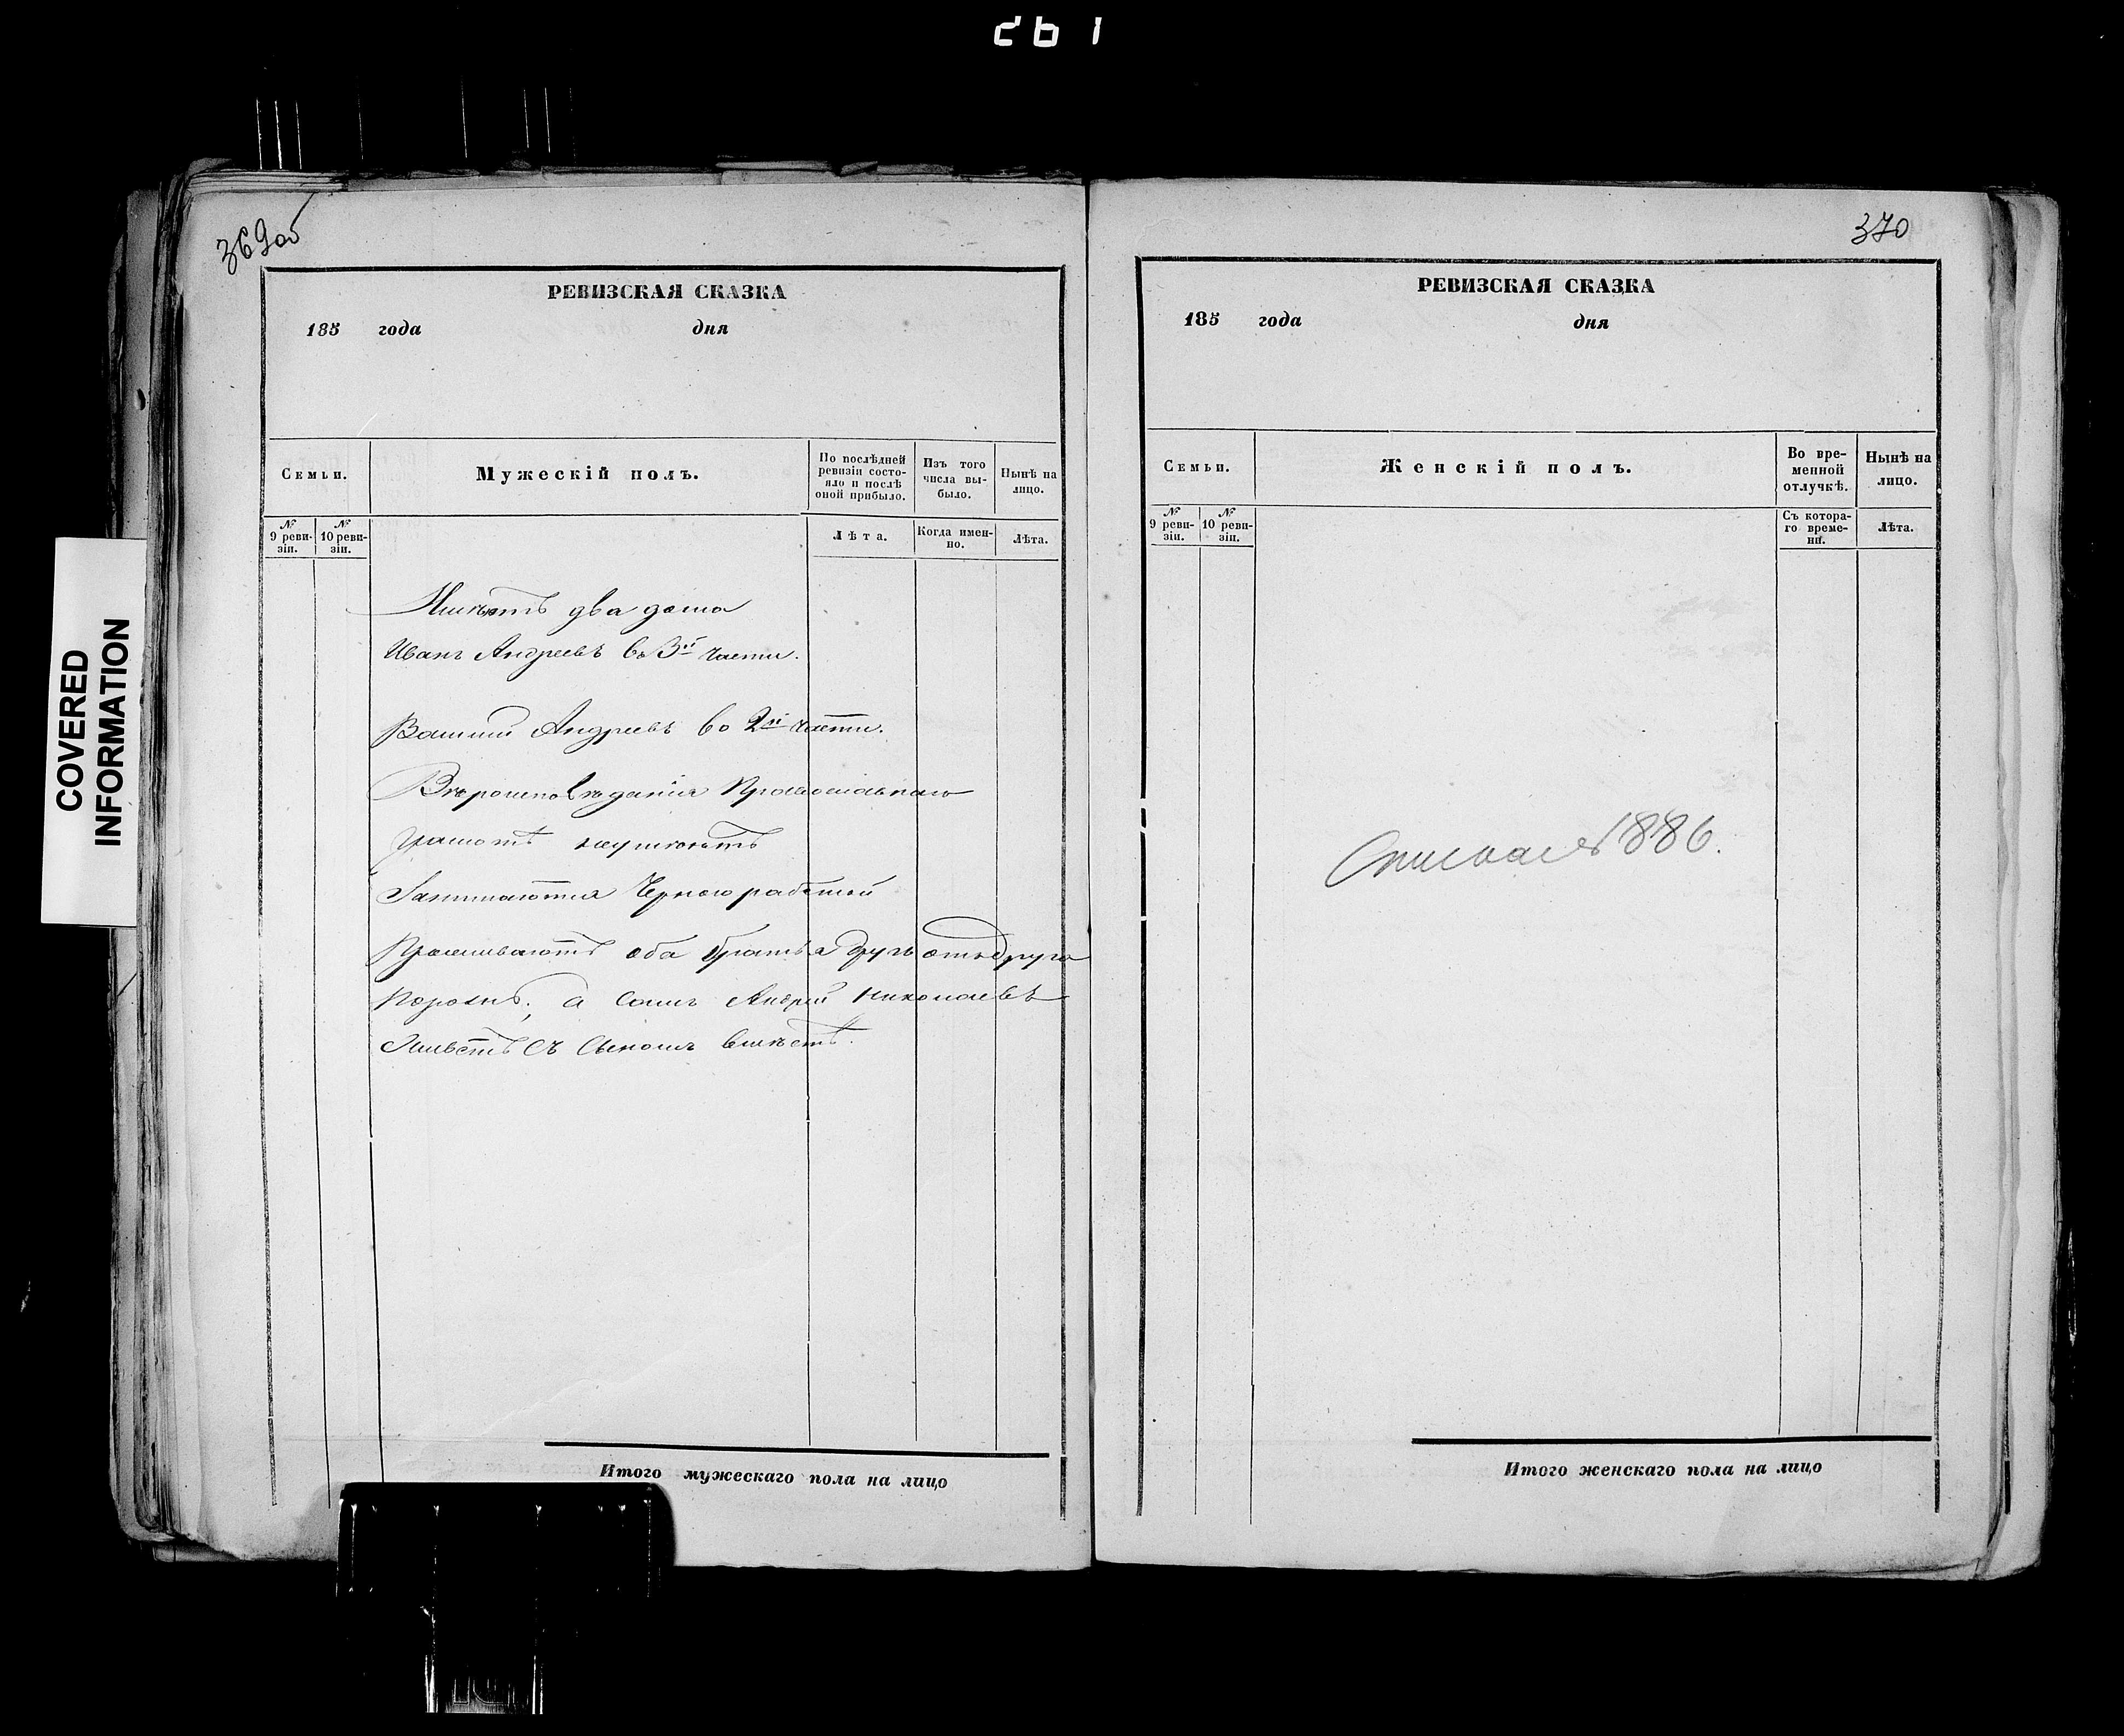 261
369об
РЕВИЗСКАЯ СКАЗКА
185 года дня
Семьи.
Мужескій полъ.
По послѣдней ревизіи состояло и послѣ оной прибыло.
Изъ того числа выбыло.
Нынѣ на лицо.
№ 9 ревизіи.
№ 10 ревизіи.
Лѣта.
Когда именно.
Лѣта.
Имѣютъ два дома
Иванъ Андреевъ въ 3й части.
Василий Андреевъ во 2й части.
Вѣроисповѣданія Православнаго
Грамотѣ неумѣютъ
Занимаются Черною работой
Проживаютъ оба братья другъ отъ друга
порознь, а Самъ Андрей Николаевъ
Живетъ Съ Сыномъ вмѣстѣ.
Итого мужескаго пола на лицо
COVERED
INFORMATION
370
РЕВИЗСКАЯ СКАЗКА
185 года дня
Семьи.
Женскій полъ.
Во временной отлучкѣ.
Нынѣ на лицо.
№ 9 ревизіи.
№ 10 ревизіи.
Съ котораго времени.
Лѣта.
1886.
Итого женскаго пола на лицо